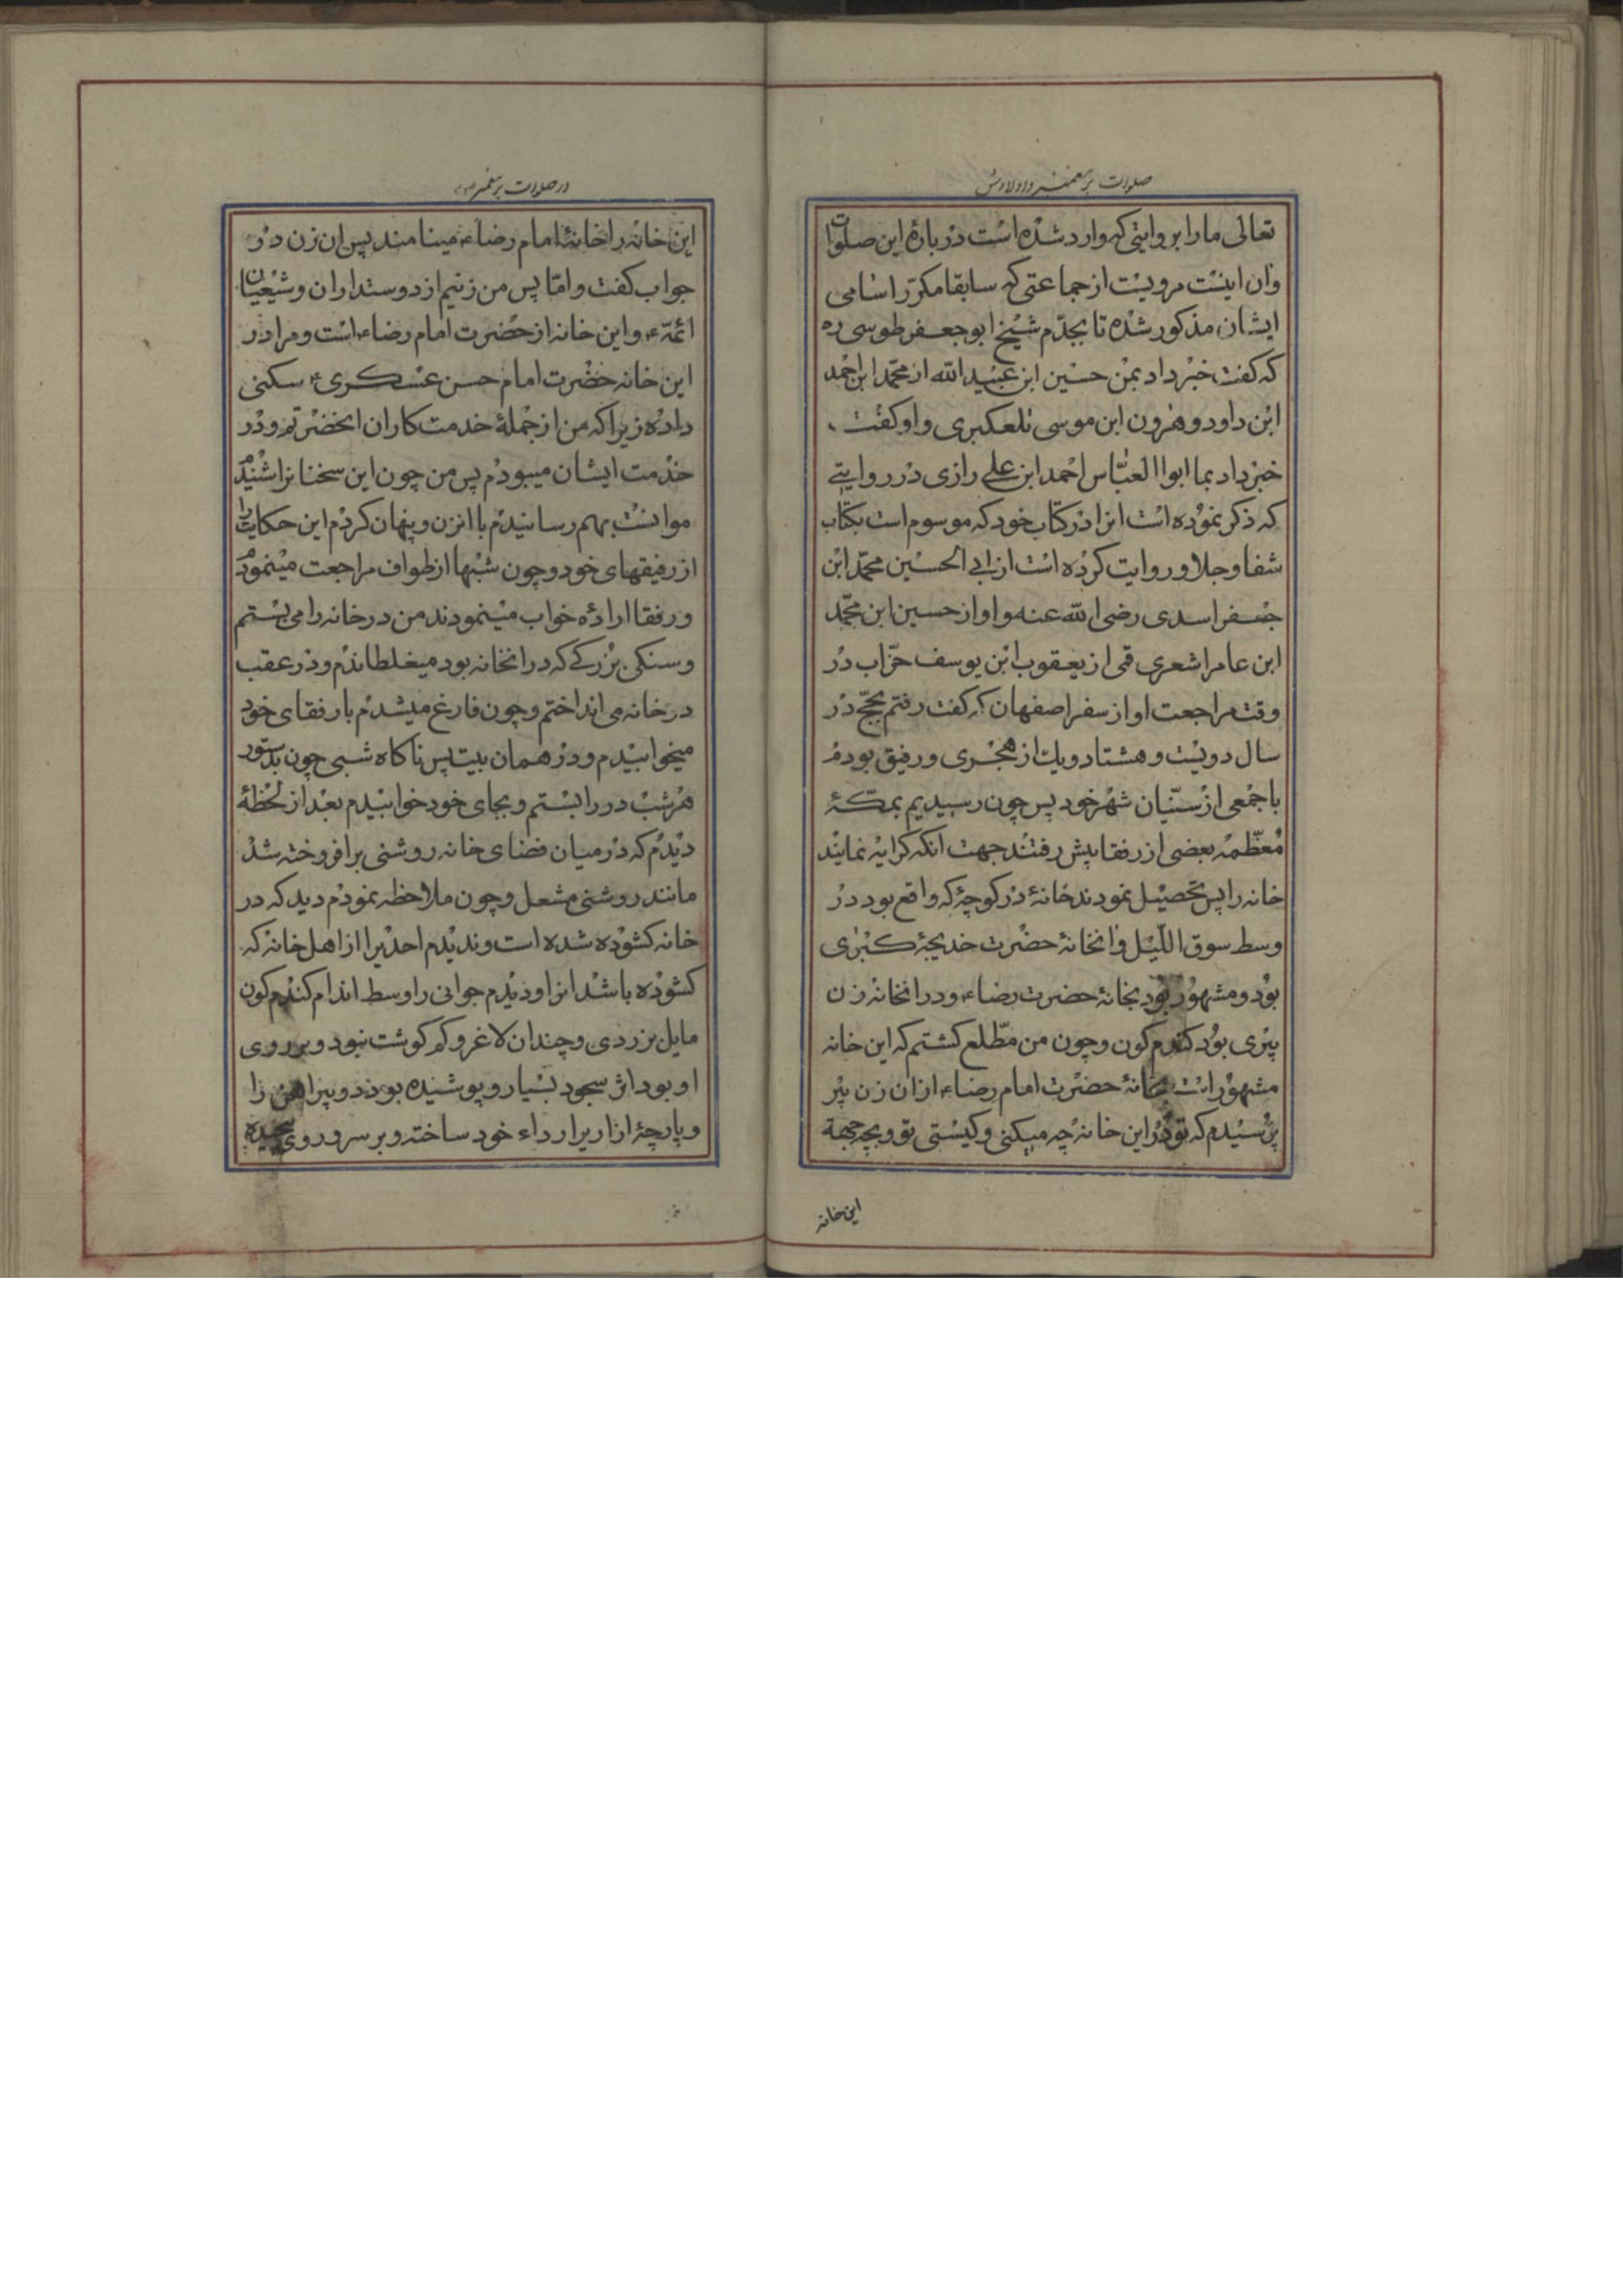 صلوات بر پیغمبر و اولادش
تعالی ما را بروایتی که وارد شده است در بارهٔ این صلوات
وان اینست مرویست از جماعتی که سابقا مکرّر اسامی
ایشان مذکور شده تا بجدّم شیخ ابو جعفر طوسی ره
که گفت خبر داد بمن حسین ابن عبید الله از محمّد ابن احمد
ابن داود و هرون ابن موسی تلعکبری و او کفت
خبر داد بما ابوا العبّاس احمد ابن علی رازی در روایتے
که ذکر نموده است انرا در کتاب خود که موسوم است بکتاب
شفا و جلا و روایت کرده است از ابی الحسین محمّد ابن
جعفر اسدی رضی الله عنه و او از حسین ابن محمّد
ابن عامر اشعری قمی از یعقوب ابن یوسف حرّاب در
وقت مراجعت او از سفر اصفهان که کفت رفتم بحجّ در
سال دویست و هشتاد و یك از هجری و رفیق بودم
با جمعی از سنّیان شهر خود پس چون رسیدیم بمکّهٔ
معظّمه بعضی از رفقا پیش رفتند جهت انکه کرایه نمایند
خانه را پس تحصیل نمودند خانهٔ در کوچهٔ که واقع بود در
وسط سوق اللّیل و انخانهٔ حضرت خدیجهٔ کبری
بود و مشهور بود بخانهٔ حضرت رضاء و در انخانه زن
پیری بود کندم کون و چون من مطّلع کشتم که این خانه
مشهور است بخانهٔ حضرت امام رضاء از ان زن پیر
پرسیدم که تو در این خانه چه میکنی و کیستی تو و بچه جهة
این خانه
در صلوات بر پیغمبر
این خانه را خانهٔ امام رضاء مینامند پس ان زن در
جواب کفت و امّا پس من زنیم از دوستداران و شیعیان
ائمّهء و این خانه از حضرت امام رضاء است و مرا در
این خانه حضرت امام حسن عسکریء سکنی
داده زیرا که من از جملهٔ خدمت کاران انحضرتم و در
خدمت ایشان میبودم پس من چون این سخنانرا شنیدم
موانست بهم رسانیدم با انزن و پنهان کردم این حکایت را
از رفیقهای خود و چون شبها از طواف مراجعت مینمودم
و رفقا ارادهٔ خواب مینمودند من در خانه را می بستم
و سنکی بزرکے که در انخانه بود میغلطاندم و در عقب
در خانه می انداختم و چون فارغ میشدم با رفقای خود
میخوابیدم و در همان بیت پس ناکاه شبی چون بدستور
هر شب در را بستم و بجای خود خوابیدم بعد از لحظهٔ
دیدم که در میان فضای خانه روشنی برافروخته شد
مانند روشنی مشعل و چون ملاحظه نمودم دید که در
خانه کشوده شده است و ندیدم احدیرا از اهل خانه که
کشوده باشد انرا و دیدم جوانی را وسط اندام کندم کون
مایل بزردی و چندان لاغر و کم کوشت نبود و بر روی
او بود اثر سجود بسیار و پوشیده بود دو پیراهن را
و پارچهٔ ازار یرا رداء خود ساخته و بر سر و روی پیچیده